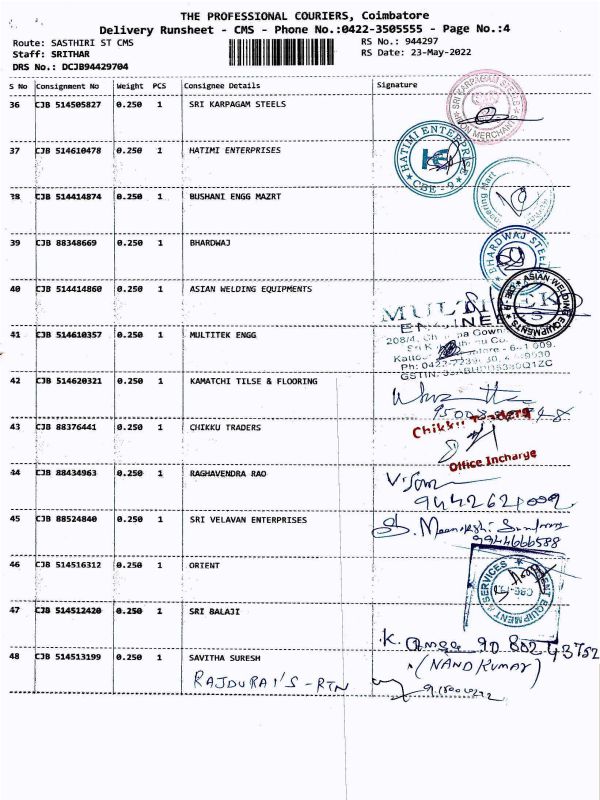 THE PROFESSIONAL COURIERS, Coimbatore
Delivery Runsheet - CMS - Phone No.:0422-3505555 - Page No.:4
Route: SASTHIRI ST CMS RS No.: 944297
Staff: SRITHAR RS Date: 23-May-2022
DRS No.: DCJB94429704
S No Consignment No Weight PCS Consignee Details Signature
36 CJB 514505827 0.250 1 SRI KARPAGAM STEELS
SRI KARPAGAM STEELS
IRON MERCHANTS
37 CJB 514610478 0.250 1 HATIMI ENTERPRISES
HATIMI ENTERPRISE
CBE - 9
38 CJB 514414874 0.250 1 BUSHANI ENGG MAZRT
39 CJB 88348669 0.250 1 BHARDWAJ
BHARDWAJ STEEL
40 CJB 514414860 0.250 1 ASIAN WELDING EQUIPMENTS
ASIAN WELDING EQUIPMENTS
CBE-9
41 CJB 514610357 0.250 1 MULTITEK ENGG
42 CJB 514620321 0.250 1 KAMATCHI TILSE & FLOORING
43 CJB 88376441 0.250 1 CHIKKU TRADERS
Chikku Traders
Office Incharge
44 CJB 88434963 0.250 1 RAGHAVENDRA RAO
9442621092
45 CJB 88524840 0.250 1 SRI VELAVAN ENTERPRISES
9944666588
46 CJB 514516312 0.250 1 ORIENT
EQUIPMENT & SERVICES
47 CJB 514512420 0.250 1 SRI BALAJI
K. 90 802 43752
48 CJB 514513199 0.250 1 SAVITHA SURESH
(NAND KUMAR)
RAJDURAI'S - RTN